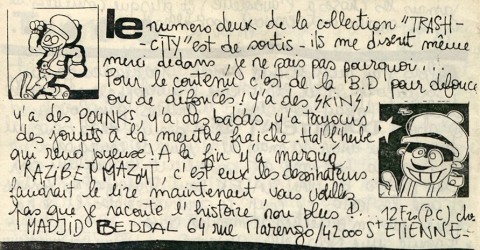 le numero deux de la collection "TRASH-
-CITY" est de sortis - ils me disent même
merci dedans, je sais pas pourquoi...
Pour le contenu c'est de la B.D pour défonce
ou de défoncés! Y'a des SKINS,
y'a des POUNKS, y'a des babas, y'a toujours
des joints à la menthe fraiche. Ha! l'herbe
qui rend joyeuse! A la fin y'a marqué
KAZIBER MAZMT, c'est eux les dessinateurs.
faudrait le lire maintenant vous voulles
pas que je raconte l'histoire non plus!... 12Fzo (P.C) chez
MADJID BEDDAL 64 rue Marengo/42000 St ETIENNE-